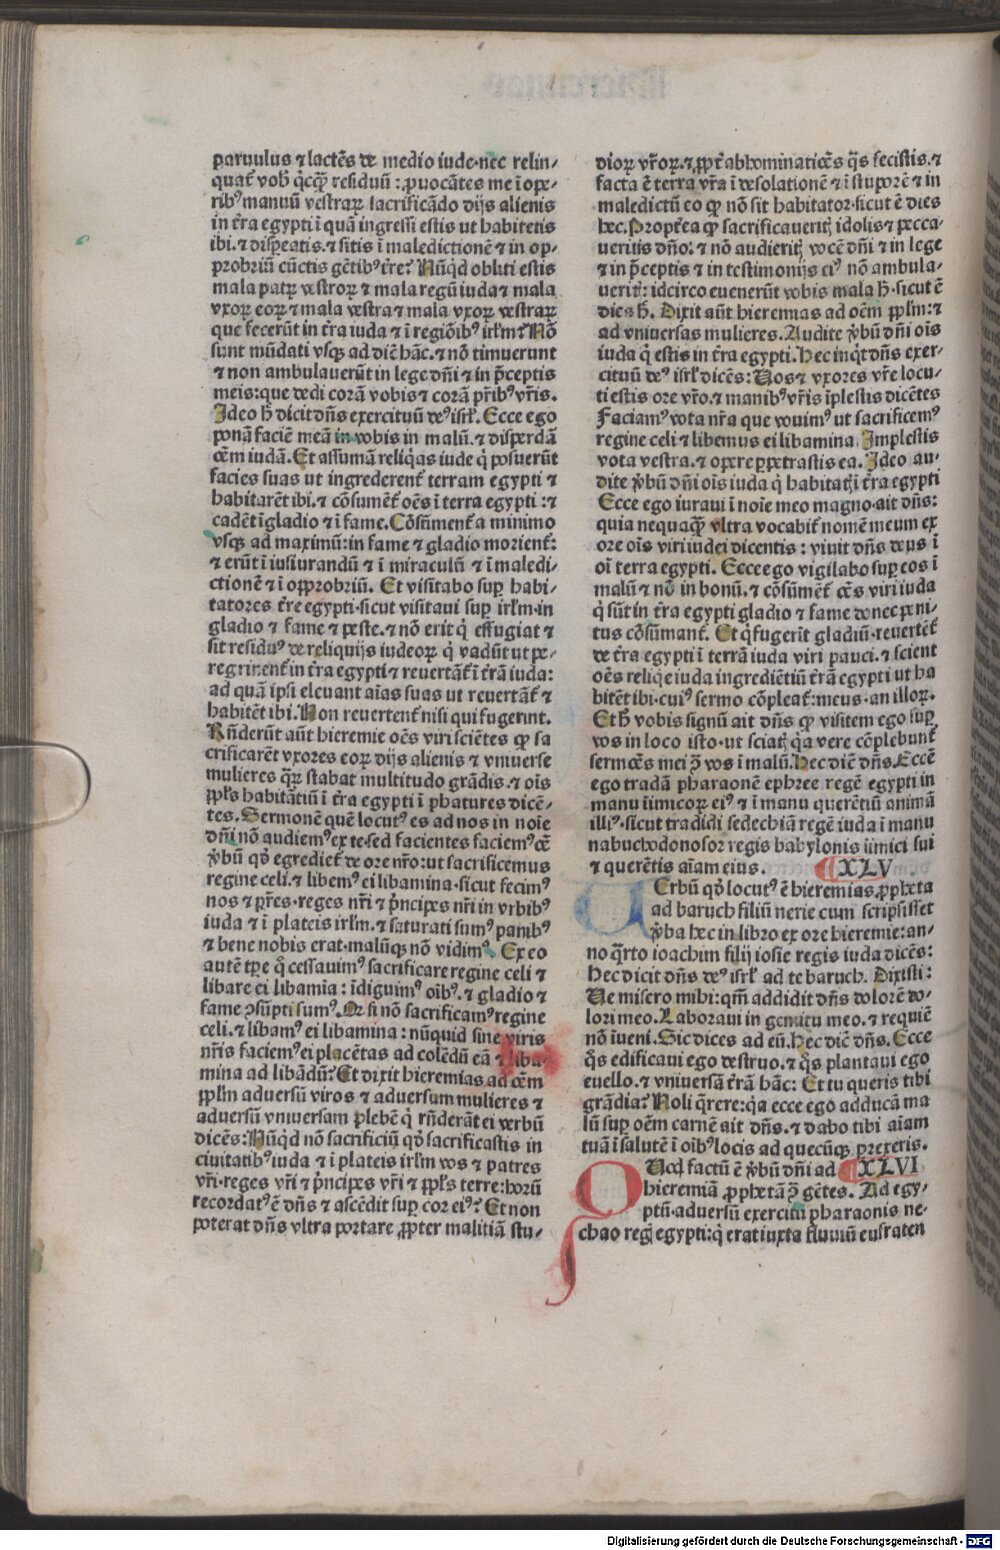 paruulus ⁊ lactẽs de medio iude·nec relin⸗
quat̃ vob̃ q̇cq̃ʒ residuũ : ꝓuocãtes me ĩ ope⸗
rib⁹ manuũ vestraꝝ sacrificãdo dijs alienis
in t̃ra egypti ĩ quã ingressi estis ut habitetis
ibi.⁊ disꝑeatis.⁊ sitis ĩ maledictionẽ ⁊ in op⸗
probriũ cũctis gẽtib⁹ t̃re? Nũq̇d obliti estis
mala patrꝝ vestroꝝ ⁊ mala regũ iuda ⁊ mala
vxoꝝ eoꝝ ⁊ mala vestra ⁊ mala vxoꝝ vestraꝝ
que fecerũt in t̃ra iuda ⁊ ĩ regiõib⁹ irl̃m? Nõ
sunt mũdati vsqʒ ad diẽ hãc.⁊ nõ timuerunt
⁊ non ambulauerũt in lege dñi ⁊ in p̃ceptis
meis:que dedi corã vobis ⁊ corã pr̃ib⁹ vr̃is.
Ideo h̃ dicit dñs exercituũ de⁹ isrl̃. Ecce ego
ponã faciẽ meã in vobis in malũ.⁊ disperdã
oẽm iudã. Et assumã reliq̇as iude q̇ posuerũt
facies suas ut ingrederent̃ terram egypti ⁊
habitarẽt ibi.⁊ cõsument̃ oẽs ĩ terra egypti :⁊
cadẽt ĩ gladio ⁊ ĩ fame. Cõsũment̃ a minimo
vsqʒ ad maximũ:in fame ⁊ gladio morient̃:
⁊ erũt ĩ iusiurandũ ⁊ ĩ miraculũ ⁊ ĩ maledi⸗
ctionẽ ⁊ ĩ opprobriũ. Et visitabo suꝑ habi⸗
tatores t̃re egypti·sicut visitaui suꝑ irl̃m·in
gladio ⁊ fame ⁊ peste.⁊ nõ erit q̇ effugiat ⁊
sit residu⁹ de reliquijs iudeoꝝ q̇ vadũt ut pe⸗
regrinent̃ in t̃ra egypti ⁊ reuertãt̃ ĩ t̃rã iuda:
ad quã ipsi eleuant aĩas suas ut reuertãt̃ ⁊
habitẽt ibi. Non reuertent̃ nisi qui fugerint.
Rñderũt aũt hieremie oẽs viri sciẽtes ꝙ sa
crificarẽt vxores eoꝝ dijs alienis ⁊ vniuerse
mulieres q̃ꝝ stabat multitudo grãdis.⁊ oĩs
ppl̃s habitãtiũ ĩ t̃ra egypti ĩ phatures dicẽ⸗
tes. Sermonẽ quẽ locut⁹ es ad nos in noĩe
dñi nõ audiem⁹ ex te sed facientes faciem⁹ oẽ
v̉bũ qđ egrediet̃ de ore nr̃o:ut sacrificemus
regine celi.⁊ libem⁹ ei libamina·sicut fecim⁹
nos ⁊ pr̃es·reges nr̃i ⁊ p̃ncipes nr̃i in vrbib⁹
iuda ⁊ ĩ plateis irl̃m.⁊ saturati sum⁹ panib⁹
⁊ bene nobis erat·malũqʒ nõ vidim⁹. Ex eo
autẽ tꝑe q̇ cessauim⁹ sacrificare regine celi ⁊
libare ei libamĩa : ĩdiguim⁹ oĩb⁹.⁊ gladio ⁊
fame ꝯsũpti sum⁹. Qr si nõ sacrificam⁹ regine
celi.⁊ libam⁹ ei libamina : nũquid sine viris
nr̃is faciem⁹ ei placẽtas ad colẽdũ eã ⁊ liba⸗
mina ad libãdũ? Et dixit hieremias ad oẽm
ppl̃m aduersũ viros ⁊ aduersum mulieres ⁊
aduersũ vniuersam plebẽ q̇ rñderãt ei verbũ
dicẽs: Nũq̇d nõ sacrificiũ qđ sacrificastis in
ciuitatib⁹ iuda ⁊ ĩ plateis irl̃m vos ⁊ patres
vr̃i·reges vr̃i ⁊ p̃ncipes vr̃i ⁊ ppl̃s terre:horũ
recordat⁹ ẽ dñs ⁊ ascẽdit suꝑ cor ei⁹? Et non
poterat dñs vltra portare ꝓpter malitiã stu⸗
dioꝝ vr̃oꝝ.⁊ ꝓpt̃ abhominatiões q̃s fecistis.⁊
facta ẽ terra vr̃a ĩ desolationẽ ⁊ ĩ stuporẽ ⁊ in
maledictũ eo ꝙ nõ sit habitator·sicut ẽ dies
hec. Propt̃ea ꝙ sacrificaueritꝭ idolis ⁊ pecca⸗
ueritis dño: ⁊ nõ audieritꝭ vocẽ dñi ⁊ in lege
⁊ in p̃ceptis ⁊ in testimonijs ei⁹ nõ ambula⸗
ueritꝭ: idcirco euenerũt vobis mala h̃·sicut ẽ
dies h̃. Dixit aũt hieremias ad oẽm ppl̃m: ⁊
ad vniuersas mulieres. Audite v̉bũ dñi oĩs
iuda q̇ estis in t̃ra egypti. Hec inq̇t dñs exer⸗
cituũ de⁹ isrl̃ dicẽs: Vos ⁊ vxores vr̃e locu⸗
ti estis ore vr̃o.⁊ manib⁹ vr̃is ĩplestis dicẽtes
Faciam⁹ vota nr̃a que vouim⁹ ut sacrificem⁹
regine celi ⁊ libemus ei libamina. Implestis
vota vestra.⁊ opere ꝑpetrastis ea. Ideo au⸗
dite v̉bũ dñi oĩs iuda q̇ habitatꝭ ĩ t̃ra egypti
Ecce ego iuraui ĩ noĩe meo magno·ait dñs:
quia nequaq̃ʒ vltra vocabit̃ nomẽ meum ex
ore oĩs viri iudei dicentis : viuit dñs deus ĩ
oĩ terra egypti. Ecce ego vigilabo suꝑ eos ĩ
malũ ⁊ nõ in bonũ.⁊ cõsũment̃ oẽs viri iuda
q̇ sũt in t̃ra egypti gladio ⁊ fame donec peni
tus cõsũmant̃. Et q̇ fugerĩt gladiũ·reuertẽt̃
de t̃ra egypti ĩ terrã iuda viri pauci.⁊ scient
oẽs reliq̇e iuda ingrediẽtiũ t̃rã egypti ut ha
bitẽt ibi·cui⁹ sermo cõpleat̃:meus·an illoꝝ.
Et h̃ vobis signũ ait dñs ꝙ visitem ego suꝑ
vos in loco isto·ut sciatꝭ q̇a vere cõplebunt̃
sermões mei ꝯ̃ vos ĩ malũ. Hec dic̃ dñs. Ecce
ego tradã pharaonẽ ephree regẽ egypti in
manu iĩmicoꝝ ei⁹ ⁊ ĩ manu querẽtiũ animã
illi⁹·sicut tradidi sedechiã regẽ iuda ĩ manu
nabuchodonosor regis babylonis iĩmici sui
⁊ querẽtis aĩam eius. XLV
VErbũ qđ locut⁹ ẽ hieremias ꝓpheta
ad baruch filiũ nerie cum scripsisset
v̉ba hec in libro ex ore hieremie:an⸗
no q̃rto ioachim filij iosie regis iuda dicẽs:
Hec dicit dñs de⁹ isrl̃ ad te baruch. Dixisti:
Ve misero mihi:qm̃ addidit dñs dolorẽ do⸗
lori meo. Laboraui in gemitu meo.⁊ requiẽ
nõ ĩueni. Sic dices ad eũ. Hec dic̃ dñs. Ecce
q̃s edificaui ego destruo.⁊ q̃s plantaui ego
euello.⁊ vniuersã t̃rã hãc: Et tu queris tibi
grãdia? Noli q̃rere:q̇a ecce ego adducã ma
lũ suꝑ oẽm carnẽ ait dñs.⁊ dabo tibi aĩam
tuã ĩ salutẽ ĩ oĩb⁹ locis ad quecũqʒ ꝑrexeris.
QUod factũ ẽ v̉bũ dñi ad XLVI
hieremiã ꝓphetã ꝯ̃ gẽtes. Ad egy⸗
ptũ·aduersũ exercitũ pharaonis ne⸗
chao regꝭ egypti:q̇ erat iuxta fluuiũ eufraten
Digitalisierung gefördert durch die Deutsche Forschungsgemeinschaft - DFG